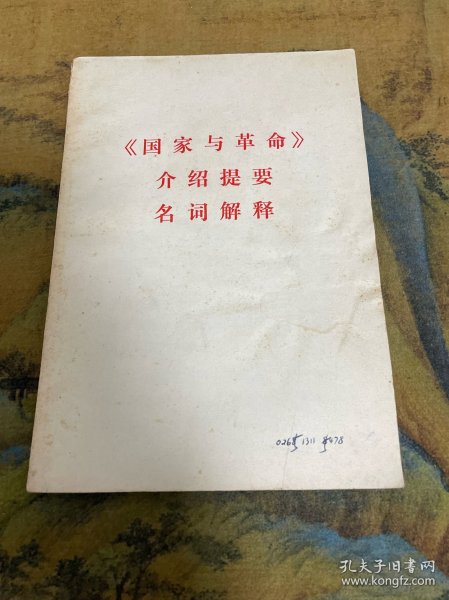 《国家与革命》
介绍提要
名词解释
孔夫子旧书网
www.kongfz.com